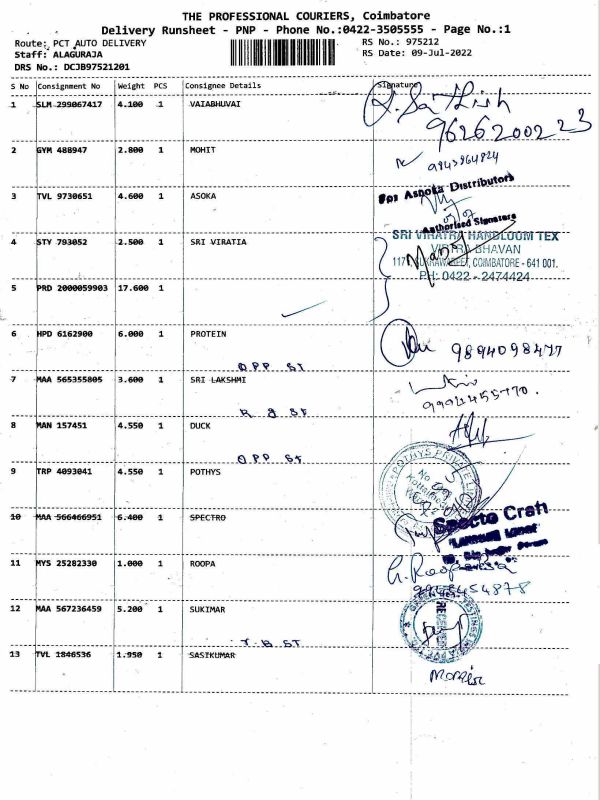 THE PROFESSIONAL COURIERS, Coimbatore
Delivery Runsheet - PNP - Phone No.:0422-3505555 - Page No.:1
Route: PCT AUTO DELIVERY
RS No.: 975212
Staff: ALAGURAJA
RS Date: 09-Jul-2022
DRS No.: DCJB97521201
S No Consignment No Weight PCS Consignee Details Signature
1 SLM 299067417 4.100 1 VAIABHUVAI
9626200223
2 GYM 488947 2.800 1 MOHIT
9843964824
3 TVL 9730651 4.600 1 ASOKA
For Asoka Distributors
Authorised Signatore
4 STY 793052 2.500 1 SRI VIRATIA
SRI VIRATRA HANDLOOM TEX
BHAVAN
COIMBATORE - 641 001.
PH: 0422 - 2474424
5 PRD 2000059903 17.600 1
6 HPD 6162900 6.000 1 PROTEIN
9894098477
OPP ST
7 MAA 565355805 3.600 1 SRI LAKSHMI
R S ST
8 MAN 157451 4.550 1 DUCK
OPP ST
9 TRP 4093041 4.550 1 POTHYS
POTHYS PRIVATE
10 MAA 566466951 6.400 1 SPECTRO
Specto Craft
11 MYS 25282330 1.000 1 ROOPA
12 MAA 567236459 5.200 1 SUKIMAR
T B ST
13 TVL 1846536 1.950 1 SASIKUMAR